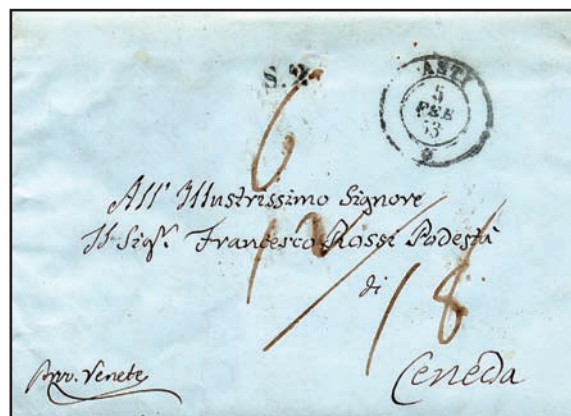 S. 2
ASTI
5
FEB
53
6
All' Illustrissimo Signore
Il Sigr. Francesco Rossi Podestà
12/18
di
Ceneda
Prov. Venete